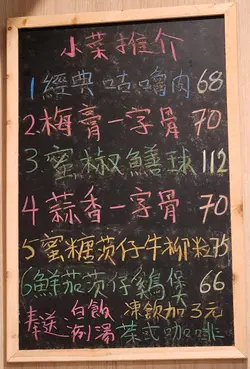 小菜推介
1經典咕嚕肉 68
2.梅膏一字骨 70
3.蜜椒鱔球 112
4蒜香一字骨 70
5蜜糖茨仔牛柳粒75
6鮮茄茨仔鷄煲 66
奉送 白飯 凍飲加3元
例湯 茶或咖啡